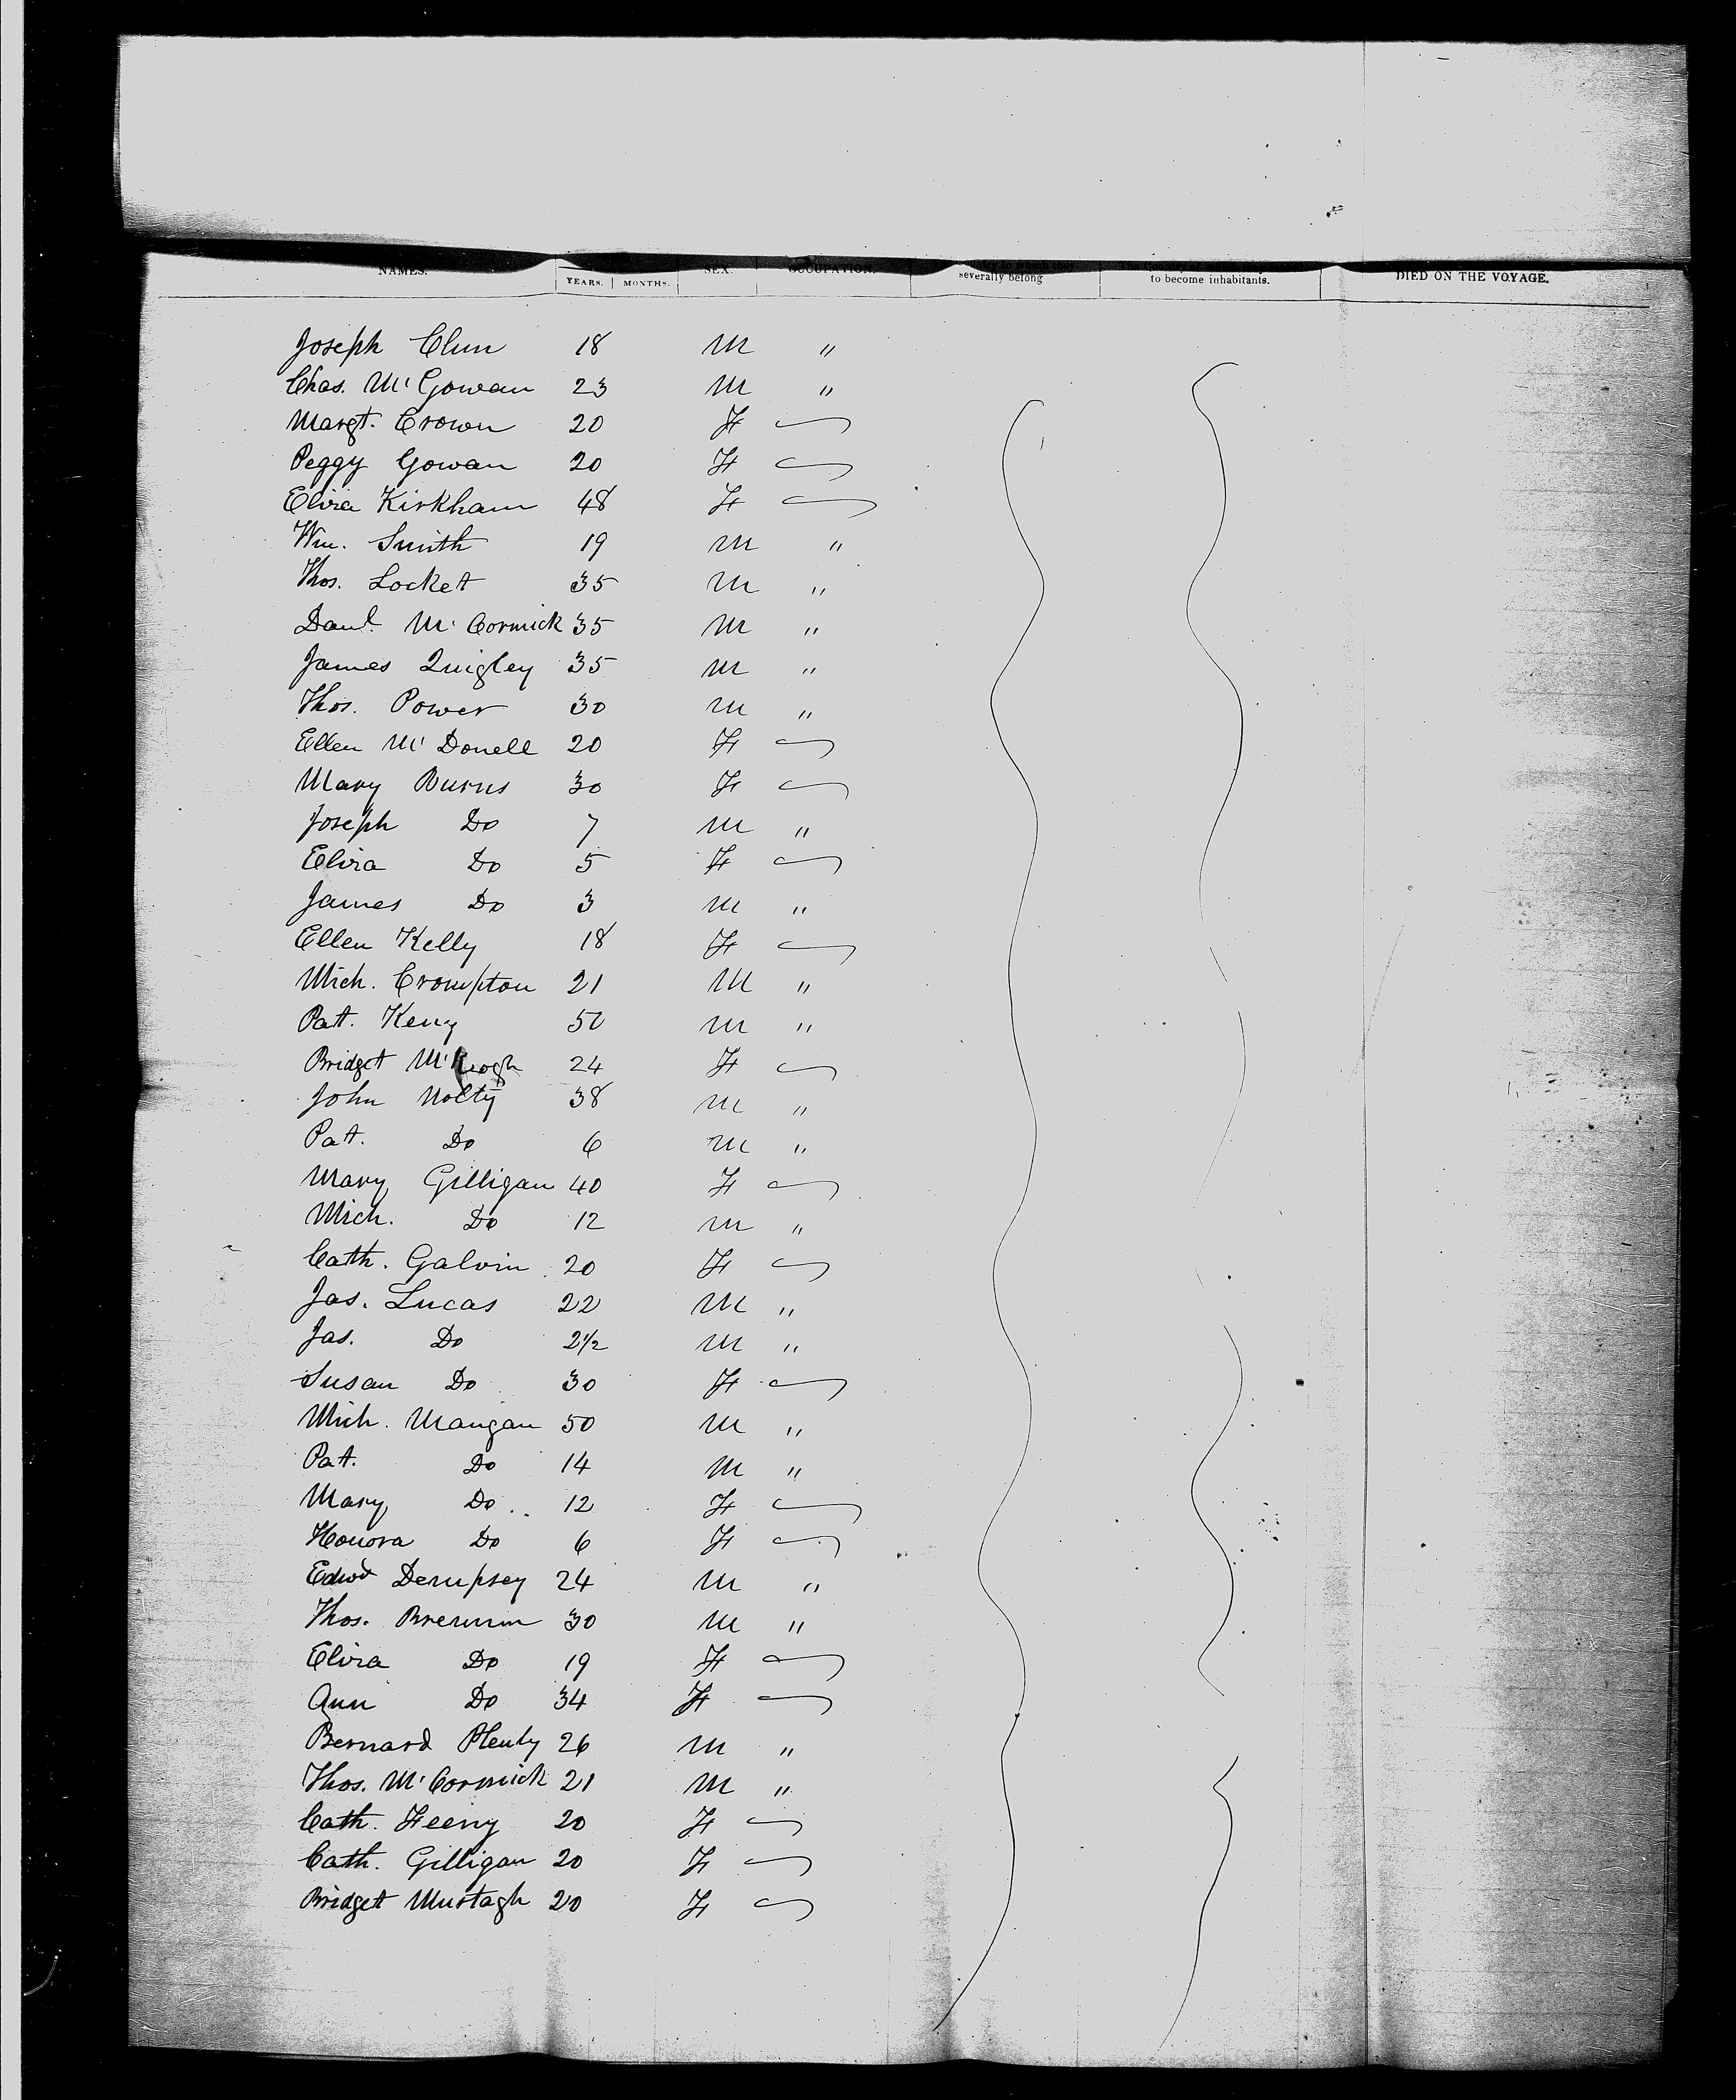 NAMES. YEARS. MONTHS. SEX. OCCUPATION. severally belong to become inhabitants. DIED ON THE VOYAGE.
Joseph Clun 18 M "
Chas. McGowan 23 M "
Margt. Crown 20 F
Peggy Gowan 20 F
Eliza Kirkham 48 F
Wm. Smith 19 M "
Thos. Locket 35 M "
Danl. McCormick 35 M "
James Quigley 35 M "
Thos. Power 30 M "
Ellen McDonell 20 F
Mary Burns 30 F
Joseph Do 7 M "
Eliza Do 5 F
James Do 3 M "
Ellen Kelly 18 F
Mich. Crompton 21 M "
Patt. Keny 50 M "
Bridget McKeogh 24 F
John Nolty 38 M "
Pat. Do 6 M "
Mary Gilligan 40 F
Mich. Do 12 M "
Cath. Galvin 20 F
Jas. Lucas 22 M "
Jas. Do 2 1/2 M "
Susan Do 30 F
Mich. Mangan 50 M "
Pat. Do 14 M "
Mary Do 12 F
Honora Do 6 F
Edwd Dempsey 24 M "
Thos. Brennin 30 M "
Eliza Do 19 F
Ann Do 34 F
Bernard 26 M "
Thos. McCormick 21 M "
Cath. Feeny 20 F
Cath. Gilligan 20 F
Bridget Murtagh 20 F